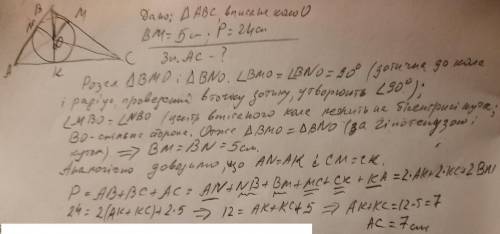 B
N
M
O
A
K
C
Дано: △ABC, вписане коло O
BM = 5см; P = 24см
Зн. AC - ?
Розгл △BMO і △BNO. ∠BMO = ∠BNO = 90° (дотична до кола
і радіус, проведений в точку дотику, утворюють ∠90°);
∠MBO = ∠NBO (центр вписаного кола лежить на бісектрисі кута;
BO - спільна сторона. Отже △BMO = △BNO (за гіпотенузою і
кутом) ⟹ BM = BN = 5см.
Аналогічно доводимо, що AN = AK і CM = CK.
P = AB + BC + AC = AN + NB + BM + MC + CK + KA = 2·AK + 2·KC + 2BM
24 = 2(AK + KC) + 2·5 ⟹ 12 = AK + KC + 5 ⟹ AK + KC = 12 - 5 = 7
AC = 7см